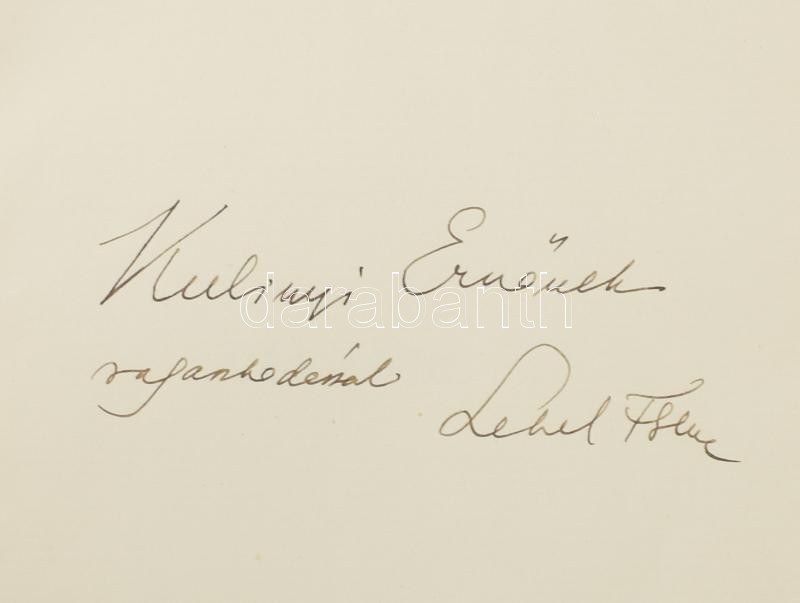 Kulinyi Ernőnek
darabanth
ragaszkodással
Lehel Ferenc